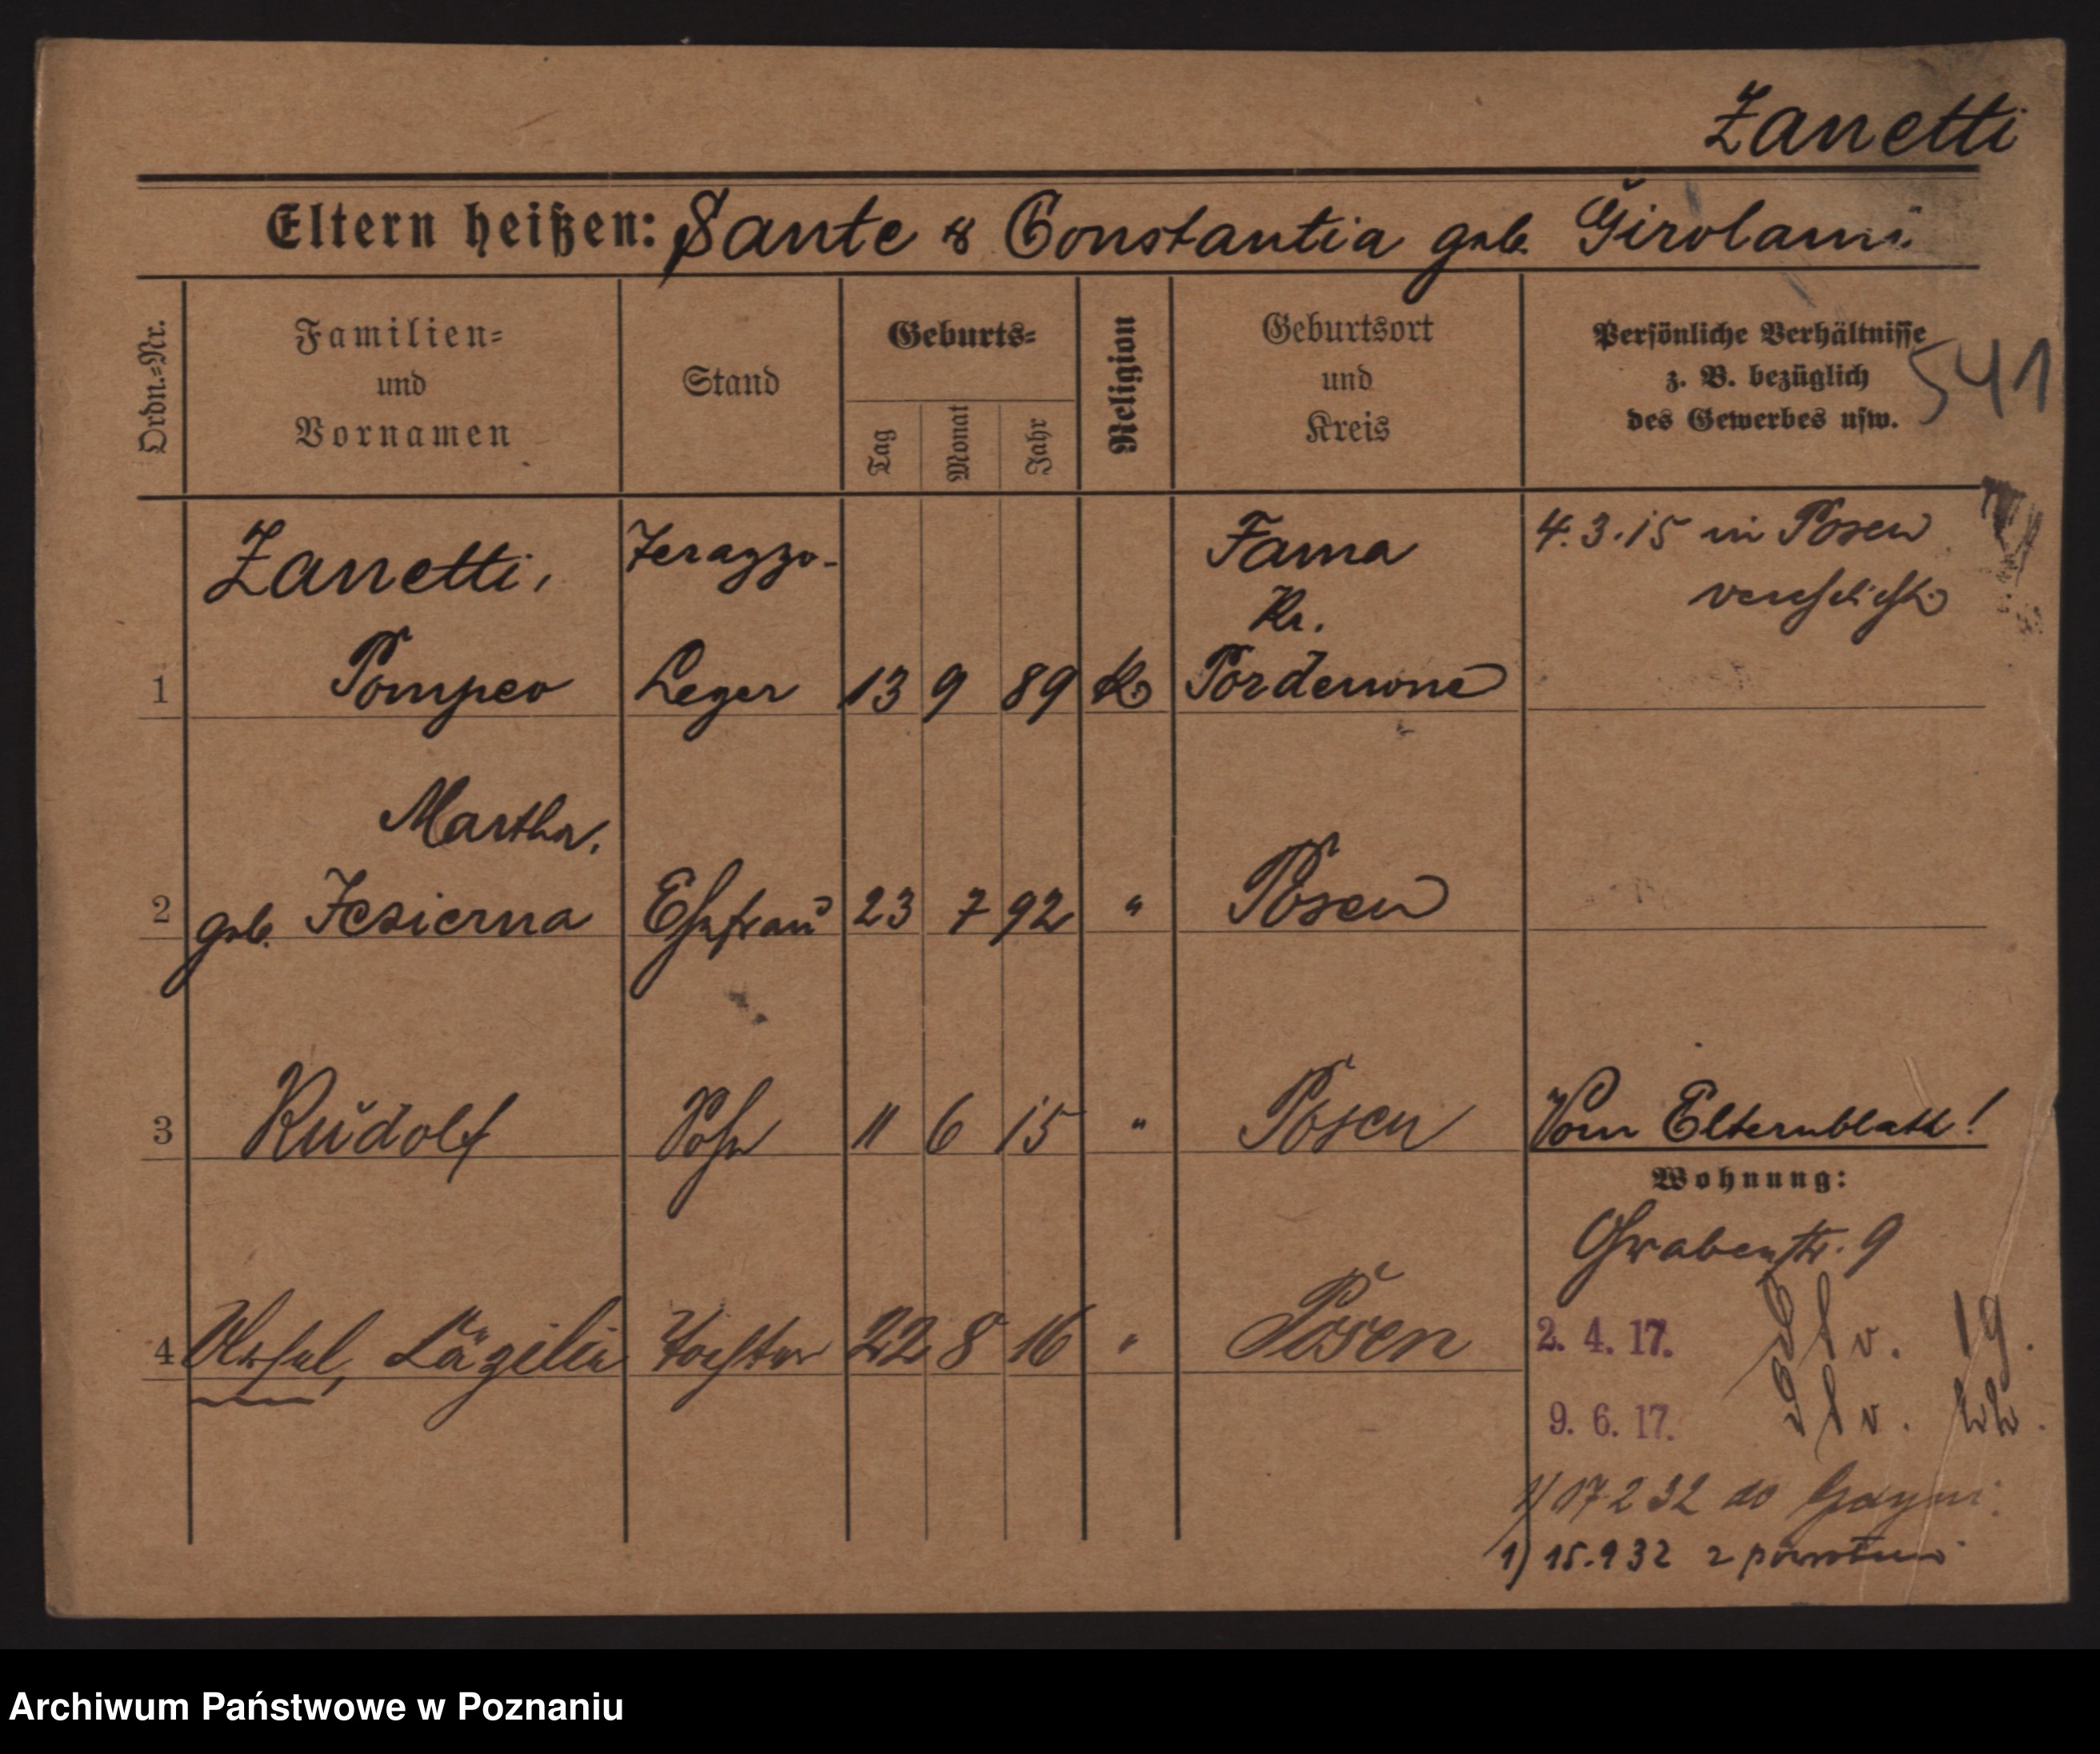 Zanetti
Eltern heißen: Sante & Constantia geb. Girolami
Ordn.-Nr.
Familien-
und
Vornamen
Stand
Geburts-
Tag
Monat
Jahr
Religion
Geburtsort
und
Kreis
Persönliche Verhältnisse
z. B. bezüglich
des Gewerbes usw.
541
Zanetti, Terazzo- Fama 4.3.15 in Posen
Kr. verehelicht
1 Pompeo Leger 13 9 89 K Pordenone
Martha,
2 geb. Jesierna Ehefrau 23 7 92 " Posen
3 Rudolf Sohn 11 6 15 " Posen Vom Elternblatt!
Wohnung:
Grabenstr. 9
4 Ursel, Läzilie Tochter 22 8 16 " Posen
2. 4. 17. v. 19.
9. 6. 17. v.
1) 17 2 32 do Gdyni
1) 15.9 32 z powrotem